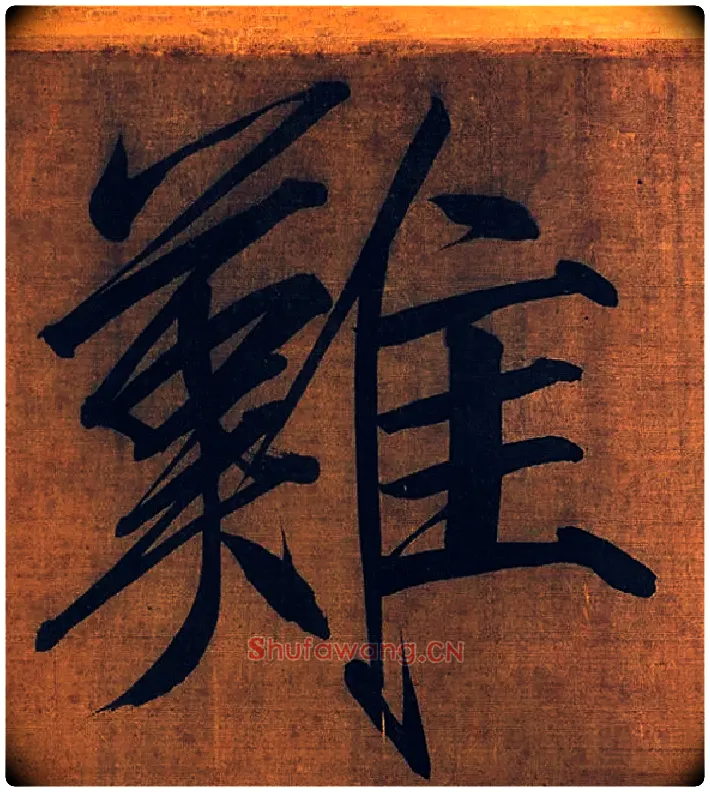 難
Shufawang.CN